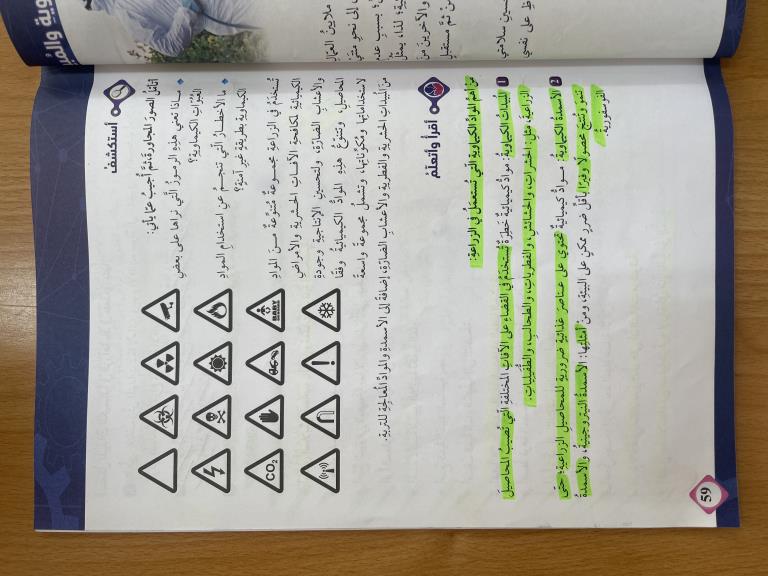 أستكشفُ
أتأمَّلُ الصورَ المجاورةَ، ثمَّ أُجيبُ عمّا يأتي:
ماذا تعني هذهِ الرموزُ الَّتي نراها على بعضِ
العبُوّاتِ الكيماويةِ؟
ما الأخطارُ الَّتي تنجمُ عنِ استخدامِ الموادِ
الكيماويةِ بطريقةٍ غيرِ آمنةٍ؟
تُستخدَمُ في الزراعةِ مجموعةٌ مُتنوِّعةٌ منَ الموادِ
الكيميائيةِ لمكافحةِ الآفاتِ الحشريةِ والأمراضِ
والأعشابِ الضارّةِ، ولتحسينِ الإنتاجيةِ وجودةِ
المحاصيلِ، وتتنوَّعُ هذهِ الموادُّ الكيميائيةُ وفقًا
لاستخداماتِها ومكوِّناتِها، وتشملُ مجموعةً واسعةً
منَ المبيداتِ الحشريةِ والفطريةِ والأعشابِ الضارّةِ، إضافةً إلى الأسمدةِ والموادِّ المُعالِجةِ للتربةِ.
CO2
BABY
أقرأُ وأتعلَّمُ
منْ أهمِّ الموادِّ الكيماويةِ الَّتي تُستعمَلُ في الزراعةِ:
1 المبيداتُ الكيماويةُ: موادُّ كيميائيةٌ خطِرةٌ تُستخدَمُ في القضاءِ على الآفاتِ المختلفةِ الَّتي تُصيبُ المحاصيلَ
الزراعيةَ، مثلِ: الحشراتِ، والحشائشِ، والفطرياتِ، والطحالبِ، والطُّفيلياتِ.
2 الأسمدةُ الكيماويةُ: موادُّ كيميائيةٌ تحتوي على عناصرَ غذائيةٍ ضروريةٍ للمحاصيلِ الزراعيةِ؛ حتّى
تنموَ وتنتجَ محصولًا وفيرًا بأقلِّ ضررٍ ممكنٍ على البيئةِ، ومنْ أمثلتِها: الأسمدةُ النيتروجينيةُ، والأسمدةُ
الفوسفوريةُ.
59